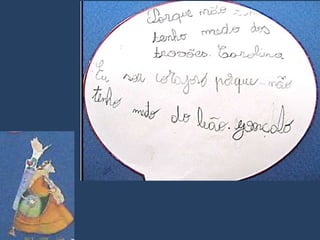 Porque não
tenho medo dos
trovões. Carolina
Eu sou corajoso porque não
tenho medo do leão. gonçalo